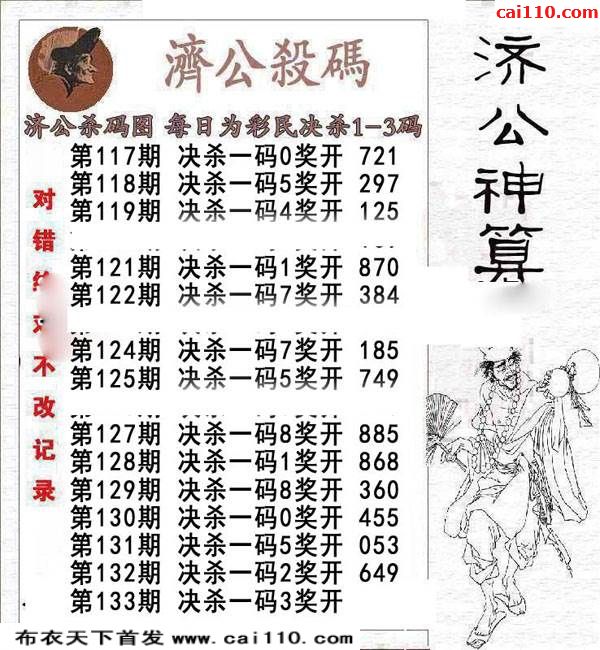 cai110.com
濟公殺碼
济公神算
济公杀码图 每日为彩民决杀1-3码
第117期 决杀一码0奖开 721
第118期 决杀一码5奖开 297
第119期 决杀一码4奖开 125
第121期 决杀一码1奖开 870
第122期 决杀一码7奖开 384
第124期 决杀一码7奖开 185
第125期 决杀一码5奖开 749
第127期 决杀一码8奖开 885
第128期 决杀一码1奖开 868
第129期 决杀一码8奖开 360
第130期 决杀一码0奖开 455
第131期 决杀一码5奖开 053
第132期 决杀一码2奖开 649
第133期 决杀一码3奖开
对错
不改记录
布衣天下首发 www.cai110.com